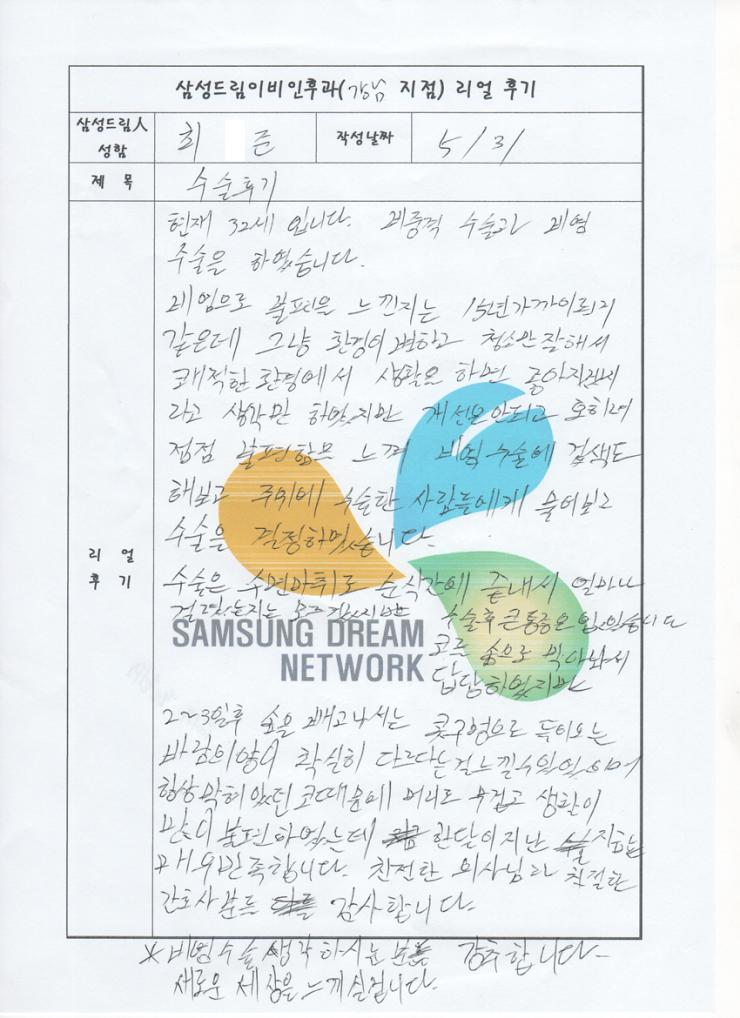 삼성드림이비인후과(강남 지점) 리얼 후기
삼성드림人 성함
최 준
작성날짜
5/31
제 목
수술후기
리 얼 후 기
현재 32세 입니다. 비중격 수술과 비염
수술을 하였습니다.
비염으로 불편을 느낀지는 15년 가까이 되
같은데 그냥 환경이 변하고 청소만 잘해서
쾌적한 환경에서 생활을 하면 좋아지겠지
라고 생각만 하였지만 개선은 안되고 오히려
점점 불편함을 느껴 비염수술에 검색도
해보고 주위에 수술한 사람들에게 물어보고
수술을 결정하였습니다.
수술은 수면마취로 순식간에 끝내서 얼마나
걸렸는지는 모르겠지만 수술후 큰 통증은 없었습니다
SAMSUNG DREAM NETWORK
코를 솜으로 막아놔서
답답하였지만
2~3일후 솜을 빼고나서는 콧구멍으로 들어오는
바람의 양이 확실히 다르다는걸 느낄수 있었으며
항상 막혀있던 코때문에 머리도 무겁고 생활이
많이 불편하였는데 한달이 지난 지금은
매우 만족합니다. 친절한 의사님과 친절한
간호사분들 감사합니다.
※ 비염수술 생각하시는 분들 강추합니다-
새로운 세상을 느끼실겁니다.